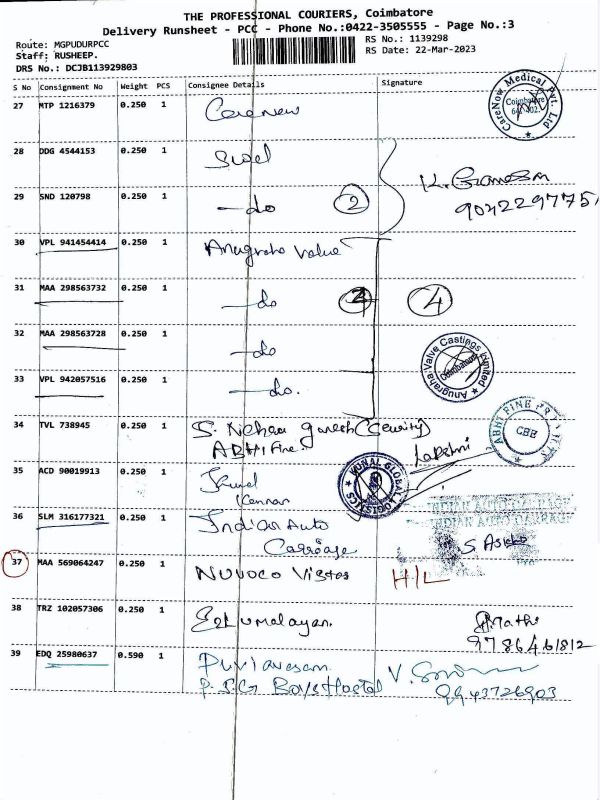 THE PROFESSIONAL COURIERS, Coimbatore
Delivery Runsheet - PCC - Phone No.:0422-3505555 - Page No.:3
Route: MGPUDURPCC
Staff: RUSHEEP.
DRS No.: DCJB113929803
RS No.: 1139298
RS Date: 22-Mar-2023
S No Consignment No Weight PCS Consignee Details Signature
27 MTP 1216379 0.250 1 Carenow
CareNow Medical Pvt. Ltd
Coimbatore
28 DDG 4544153 0.250 1
K. Ganesan
29 SND 120798 0.250 1 -do 2
9042229775
30 VPL 941454414 0.250 1 Anugraha Valve
31 MAA 298563732 0.250 1 -do 4
32 MAA 298563728 0.250 1 -do
Anugraha Valve Castings Limited
Coimbatore
33 VPL 942057516 0.250 1 -do.
34 TVL 738945 0.250 1 S. Neha ganesh (Security)
ABHI Fine.
Lakshmi
ABHI FINE
CBE
35 ACD 90019913 0.250 1 Jewel
Kennan
KUNAL GLOBAL LOGISTICS
36 SLM 316177321 0.250 1 Indian Auto
Carriage
INDIAN AUTO CARRIAGE
S. Asick
37 MAA 569064247 0.250 1 Nuvoco Vistas H/L
38 TRZ 102057306 0.250 1 Ezhumalayan.
9786461812
39 EDQ 25980637 0.590 1 Puviarasan
P.S.G Boys Hostel
9943726903